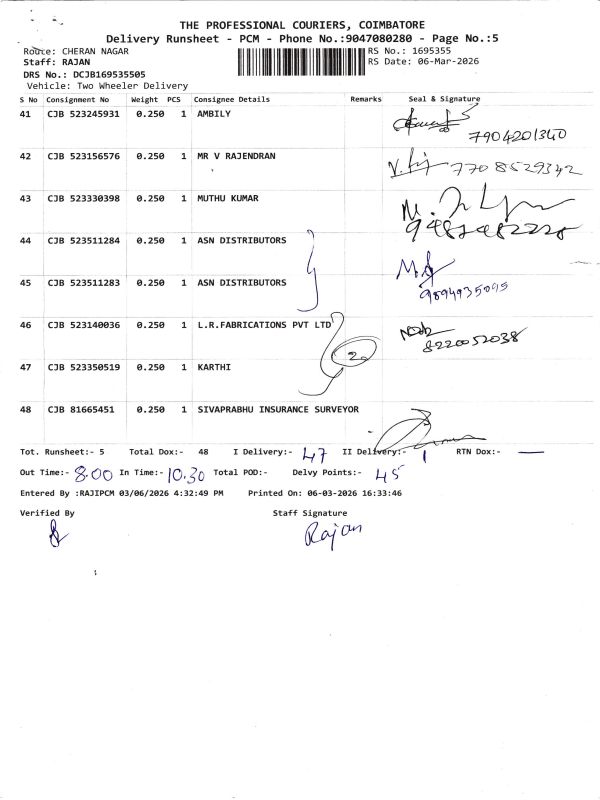 THE PROFESSIONAL COURIERS, COIMBATORE
Delivery Runsheet - PCM - Phone No.:9047080280 - Page No.:5
Route: CHERAN NAGAR
RS No.: 1695355
Staff: RAJAN
RS Date: 06-Mar-2026
DRS No.: DCJB169535505
Vehicle: Two Wheeler Delivery
S No Consignment No Weight PCS Consignee Details Remarks Seal & Signature
41 CJB 523245931 0.250 1 AMBILY
7904201340
42 CJB 523156576 0.250 1 MR V RAJENDRAN
7708529342
43 CJB 523330398 0.250 1 MUTHU KUMAR
44 CJB 523511284 0.250 1 ASN DISTRIBUTORS
45 CJB 523511283 0.250 1 ASN DISTRIBUTORS
9894935095
46 CJB 523140036 0.250 1 L.R.FABRICATIONS PVT LTD
8220052038
47 CJB 523350519 0.250 1 KARTHI
48 CJB 81665451 0.250 1 SIVAPRABHU INSURANCE SURVEYOR
Tot. Runsheet:- 5 Total Dox:- 48 I Delivery:- 47 II Delivery:- 1 RTN Dox:- —
Out Time:- 8.00 In Time:- 10.30 Total POD:- Delvy Points:- 45
Entered By :RAJIPCM 03/06/2026 4:32:49 PM Printed On: 06-03-2026 16:33:46
Verified By Staff Signature
Rajan